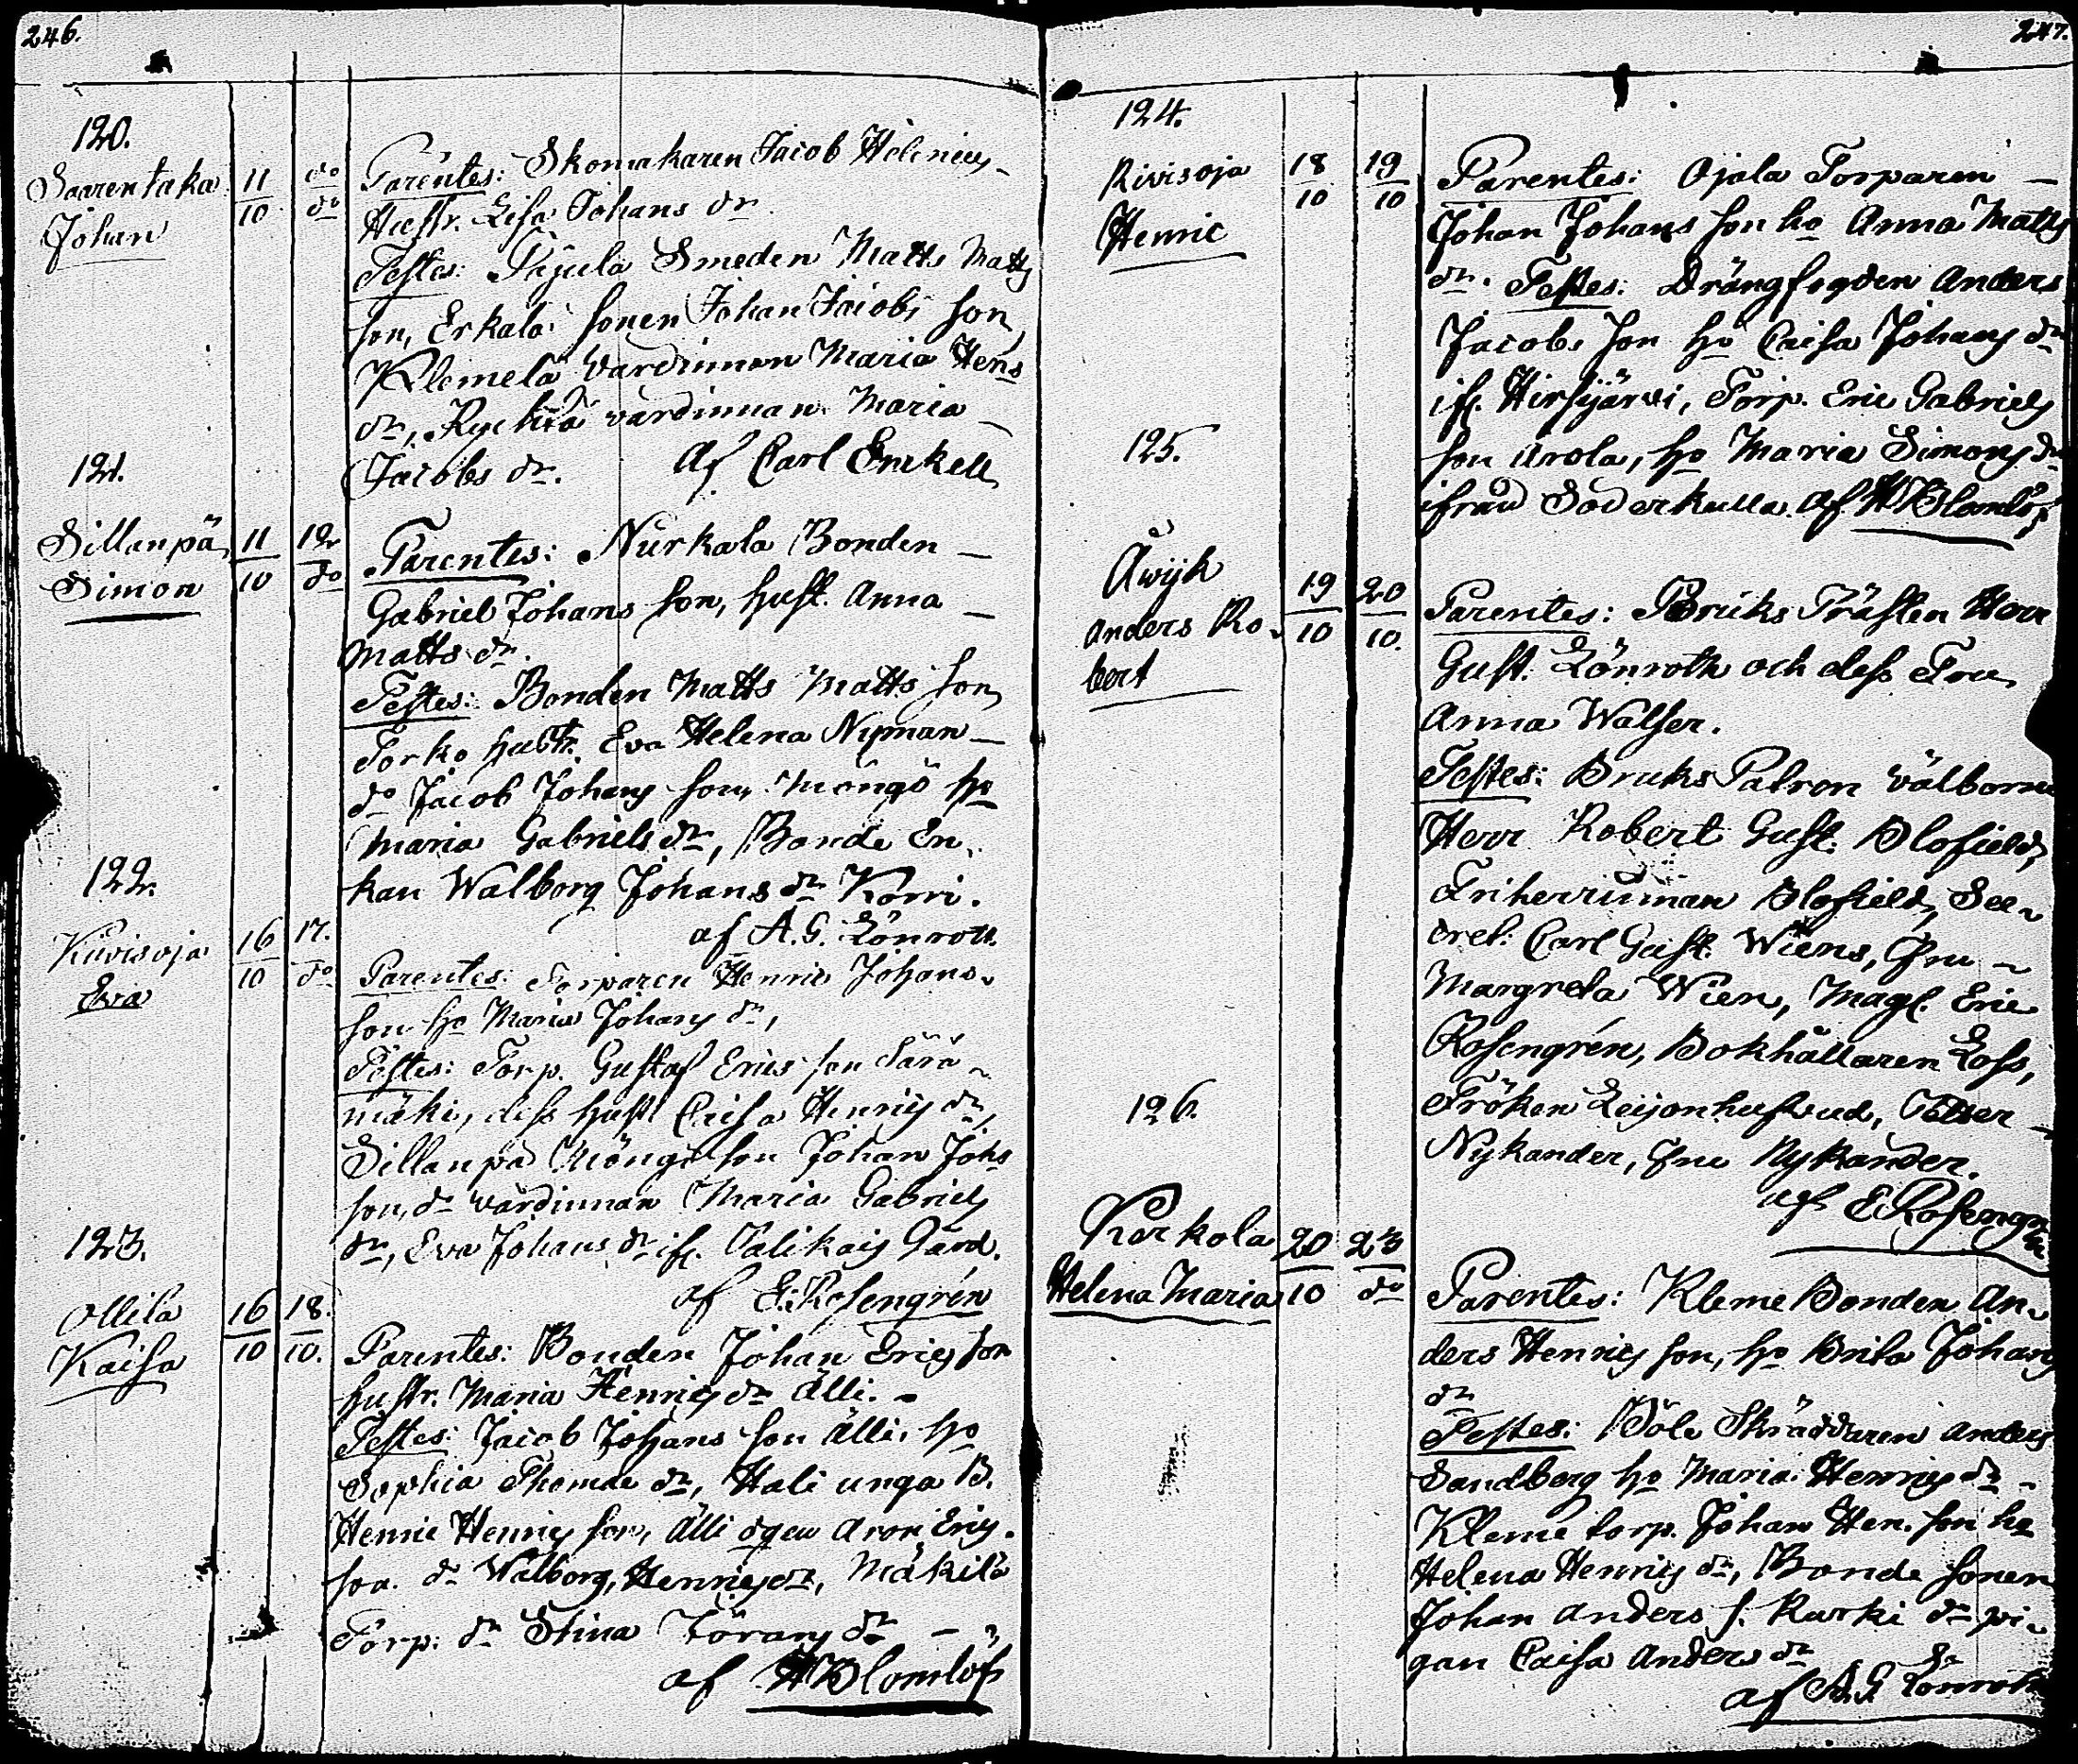 246.
120.
Saarentaka 11/10 do/do
Johan
Parentes: Skomakaren Jacob Helenius
Hustr. Lisa Johans dr.
Testes: Pajula Smeden Matts Matts
son, Erkala sonen Johan Jacobs son
Klemela Värdinnan Maria Hens
dr, värdinnan Maria
Jacobs dr. Af Carl Enckell
121.
Sillanpä 11/10 12/do
Simon
Parentes: Nurkala Bonden
Gabriel Johans son, hust. Anna
Matts dr.
Testes: Bonden Matts Matts son
Torko hustr. Eva Helena Nyman
do Jacob Johans son, Möngö ho
Maria Gabriels dr, Bonde En
kan Walborg Johans dr Korri.
af A. G. Lönrott.
122.
Kiivisoja 16/10 17./do
Eva
Parentes: Torparen Henric Johans
son ho Maria Johans dr,
Testes: Torp. Gustaf Erics son Särä
mäki, dess hust Caisa Henrics dr,
Sillanpä Möngö son Johan Johs
son, do värdinnan Maria Gabriels
dr, Eva Johans dr ifr. Palikais Gård.
af E. Rosengrén
123.
Ollila 16/10 18./10.
Kaisa
Parentes: Bonden Johan Erics son
hustr. Maria Henrics dr Älli.
Testes: Jacob Johans son Älli, ho
Sophia Thomae dr, Hali unga B.
Henric Henrics son, Älli Aron Erics
son. do Walborg Henrics dr, Mäkilä
Torp. do Stina Jörans dr
af H Blomlöf
247.
124.
Kivisoja 18/10 19/10
Henric
Parentes: Ojala Torparen
Johan Johans son ho Anna Matts
dr. Testes: Drängfogden Anders
Jacobs son ho Caisa Johans dr
ifr. Hirsjärvi, Torp. Eric Gabriels
son Arola, ho Maria Simons dr
ifrån Söderkulla. Af H Blomlöf
125.
Åwijk 19/10 20/10.
Anders Ro-
bert
Parentes: Bruks Präslen Herr
Gust. Lönroth och dess Fru
Anna Walser.
Testes: Bruks Patron Välborne
Herr Robert Gust. Blofield,
Friherrinnan Blofield, Sec
cret: Carl Gust. Wiens, Fru
Margreta Wien, Mag. Eric
Rosengrén, Bokhållaren Loss,
Fröken Leijonhufvud,
Nykander, Fru Nykander.
af E. Rosengrén
126.
Kerkola 20/10 23/do
Helena Maria
Parentes: Kleme Bonden An
ders Henrics son, ho Brita Johans
dr
Testes: Böle Skräddaren Anders
Sandberg ho Maria Henrics dr
Kleme torp. Johan Hen. son ho
Helena Henrics dr, Bonde sonen
Johan Anders s. Kurki do pi
gan Caisa Anders dr
af A. G. Lönroth